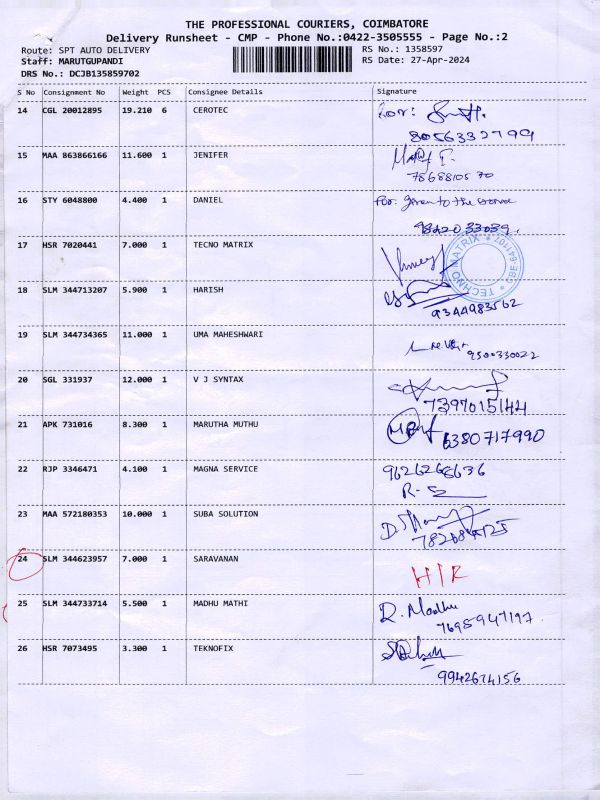 THE PROFESSIONAL COURIERS, COIMBATORE
Delivery Runsheet - CMP - Phone No.:0422-3505555 - Page No.:2
Route: SPT AUTO DELIVERY RS No.: 1358597
Staff: MARUTGUPANDI RS Date: 27-Apr-2024
DRS No.: DCJB135859702
S No Consignment No Weight PCS Consignee Details Signature
14 CGL 20012895 19.210 6 CEROTEC
8056332799
15 MAA 863866166 11.600 1 JENIFER
16 STY 6048800 4.400 1 DANIEL For: given to the
9842033039
17 HSR 7020441 7.000 1 TECNO MATRIX
TECHNO MATRIX
18 SLM 344713207 5.900 1 HARISH
9344983562
19 SLM 344734365 11.000 1 UMA MAHESHWARI
9500330022
20 SGL 331937 12.000 1 V J SYNTAX
7397015144
21 APK 731016 8.300 1 MARUTHA MUTHU
6380717990
22 RJP 3346471 4.100 1 MAGNA SERVICE 9626268636
23 MAA 572180353 10.000 1 SUBA SOLUTION
24 SLM 344623957 7.000 1 SARAVANAN H/R
25 SLM 344733714 5.500 1 MADHU MATHI R. Madhu
7695947197
26 HSR 7073495 3.300 1 TEKNOFIX
9942674156